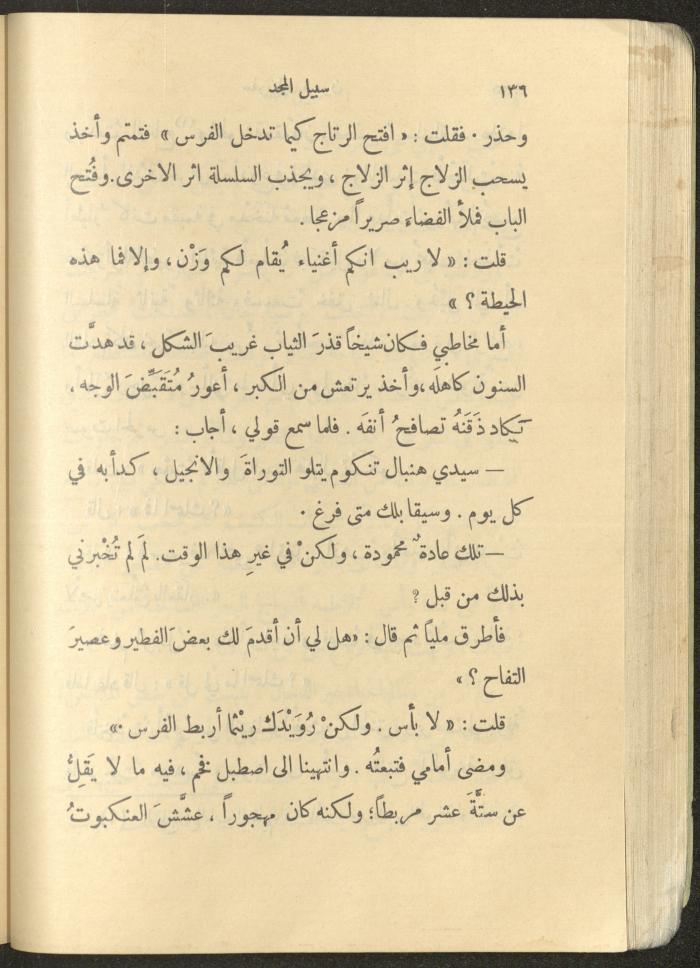 ١٣٦ سبيل المجد
وحذر . فقلت : « افتح الرتاج كيما تدخل الفرس » فتمتم وأخذ
يسحب الزلاج إثر الزلاج ، ويجذب السلسلة اثر الاخرى . وفُتح
الباب فملأ الفضاء صريراً مزعجا .
قلت : « لا ريب انكم أغنياء يُقام لكم وَزْن ، وإلا فما هذه
الحيطة ؟ »
أما مخاطبي فكان شيخاً قذرَ الثياب غريبَ الشكل ، قد هدَّت
السنون كاهلَه ، وأخذ يرتعش من الكبر ، أعورُ مُتَقَبِّضَ الوجه ،
تكاد ذَقَنَهُ تصافحُ أنفَه . فلما سمع قولي ، أجاب :
— سيدي هنبال تنكوم يتلو التوراةَ والانجيل ، كدأبه في
كل يوم . وسيقابلك متى فرغ .
— تلك عادةٌ محمودة ، ولكنْ في غيرِ هذا الوقت . لمَ لم تُخْبرني
بذلك من قبل ؟
فأطرق ملياً ثم قال : « هل لي أن أقدمَ لك بعضَ الفطير وعصيرَ
التفاح ؟ »
قلت : « لا بأس . ولكنْ رُوَيْدَك ريثما أربط الفرس . »
ومضى أمامي فتبعتُه . وانتهينا الى اصطبل فخم ، فيه ما لا يَقِلُّ
عن ستَّةَ عشر مربطاً ؛ ولكنه كان مهجوراً ، عشَّشَ العنكبوتُ